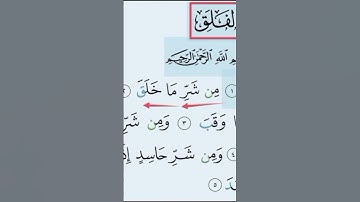 الفلق
الله الرحمن الرحيم
١ مِن شَرِّ مَا خَلَقَ ٢
وَقَبَ ٣ وَمِن شَرِّ
٤ وَمِن شَرِّ حَاسِدٍ إِذَا
٥